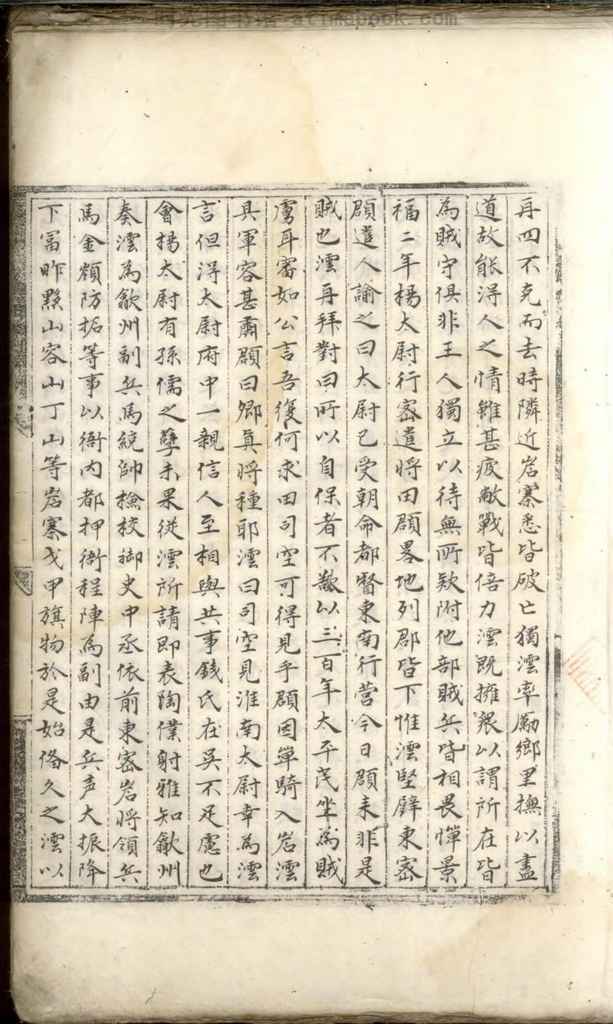 再四不克而去時隣近岩寨悉皆破亡獨澐率勵鄉里撫以盡
道故能得人之情雖甚疲敝戰皆倍力澐既擁衆以謂所在皆
為賊守俱非王人獨立以待無所欵附他部賊兵皆相畏憚景
福二年楊太尉行密遣將田頵畧地列郡皆下惟澐堅壁東密
頵遣人諭之曰太尉已受朝命都督東南行營今日頵来非是
賊也澐再拜對曰所以自保者不敢以三百年太平民坐為賊
虜耳審如公言吾復何求田司空可得見乎頵因單騎入岩澐
具軍容甚肅頵曰鄉真將種耶澐曰司空見淮南太尉幸為澐
言但淂太尉府中一親信人至相與共事錢氏在吳不足慮也
會楊太尉有孫儒之孽未果従澐所請即表陶僕射雅知歙州
奏澐為歙州副兵馬統帥檢校御史中丞依前東密岩將領兵
馬金額防拓等事以衙内都押衙程陣為副由是兵声大振降
下冨昨㸃山容山丁山等岩寨戈甲旗物於是始俻久之澐以